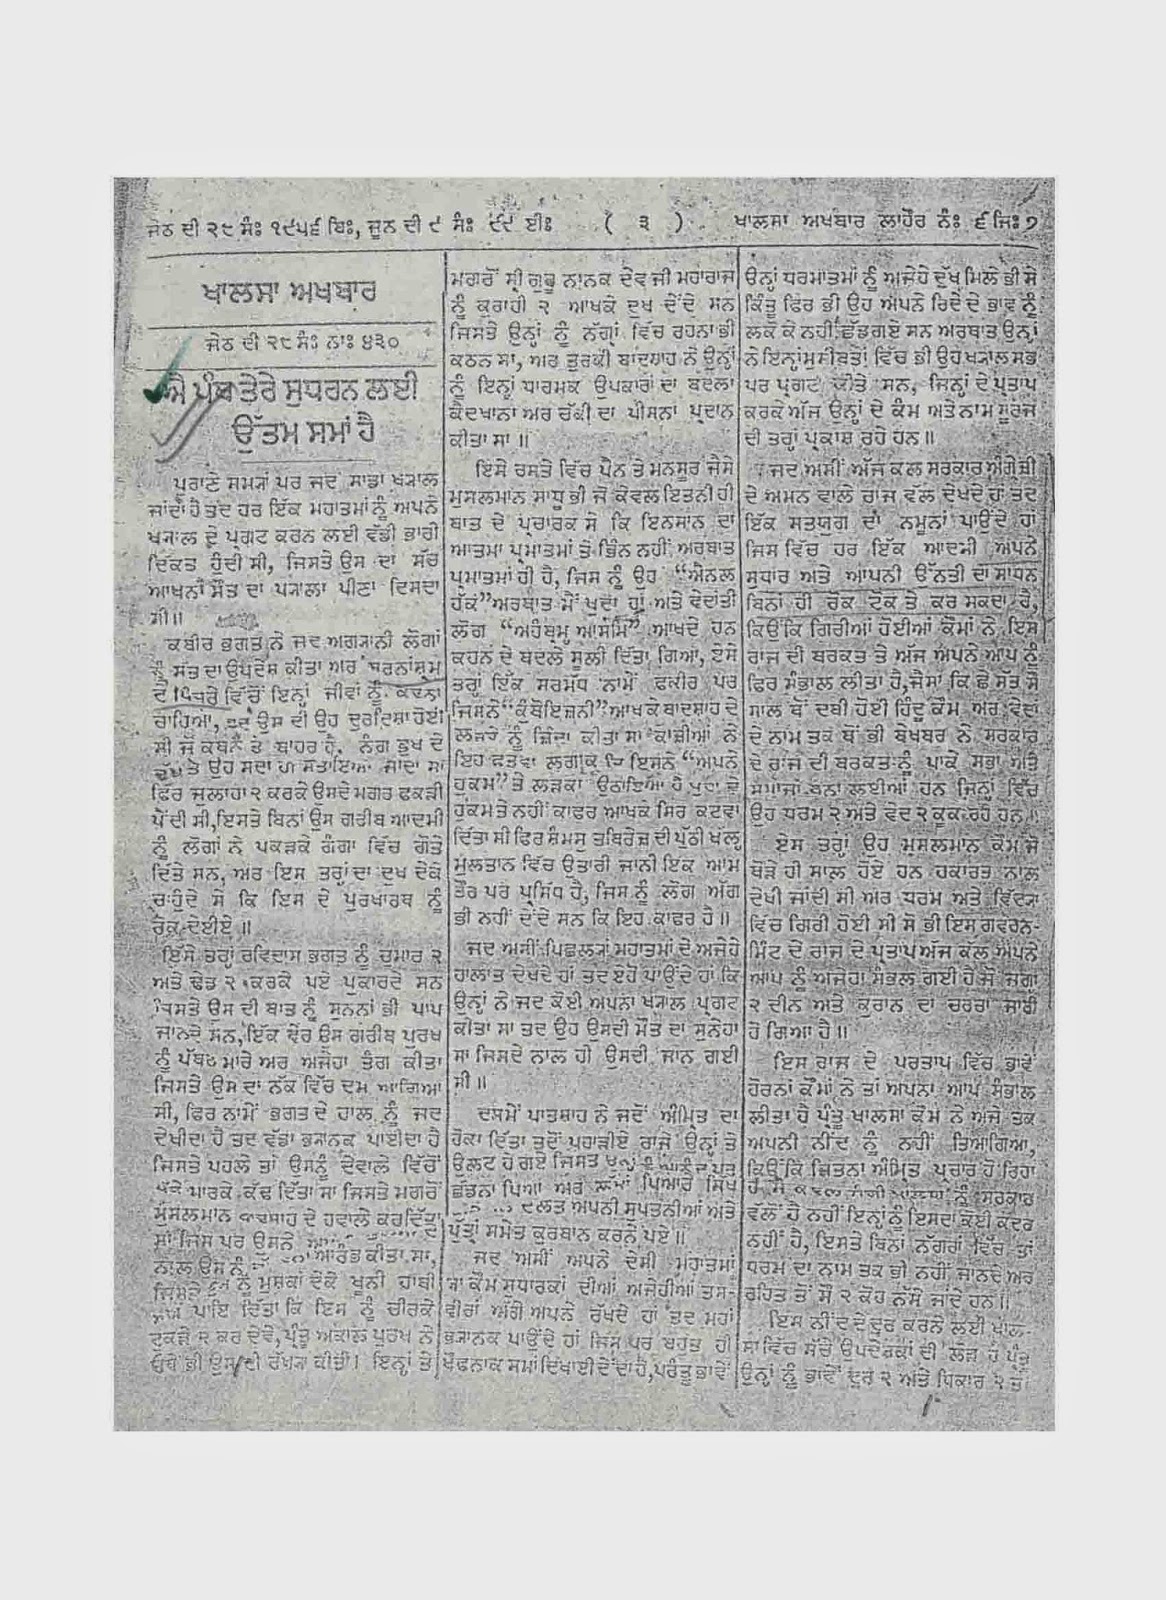 ਜੇਠ ਦੀ ੨੯ ਸੰਃ ੧੯੫੬ ਬਿਃ, ਜੂਨ ਦੀ ੯ ਸੰਃ ੯੯ ਈਃ ( ੩ ) ਖਾਲਸਾ ਅਖਬਾਰ ਲਾਹੌਰ ਨੰਃ ੬ ਜਿਃ ੭
ਖਾਲਸਾ ਅਖਬਾਰ
ਜੇਠ ਦੀ ੨੯ ਸੰਃ ਨਾਃ ੪੩੦
ਐ ਪੰਥ ਤੇਰੇ ਸੁਧਰਨ ਲਈ
ਉੱਤਮ ਸਮਾਂ ਹੈ
ਪੁਰਾਣੇ ਸਮਯਾਂ ਪਰ ਜਦ ਸਾਡਾ ਖਯਾਲ
ਜਾਂਦਾ ਹੈ ਤਦ ਹਰ ਇੱਕ ਮਹਾਤਮਾਂ ਨੂੰ ਅਪਨੇ
ਖਯਾਲ ਦੇ ਪ੍ਰਗਟ ਕਰਨ ਲਈ ਵੱਡੀ ਭਾਰੀ
ਦਿਕਤ ਹੁੰਦੀ ਸੀ, ਜਿਸਤੇ ਉਸ ਦਾ ਸੱਚ
ਆਖਨਾਂ ਮੌਤ ਦਾ ਪਯਾਲਾ ਪੀਣਾ ਦਿਸਦਾ
ਸੀ॥
ਕਬੀਰ ਭਗਤ ਨੇ ਜਦ ਅਗਯਾਨੀ ਲੋਗਾਂ
ਨੂੰ ਸੱਤ ਦਾ ਉਪਦੇਸ਼ ਕੀਤਾ ਅਰ ਬਰਨਾਂਸ਼੍ਰਮ
ਦੇ ਪਿੰਜਰੇ ਵਿੱਚੋਂ ਇਨ੍ਹਾਂ ਜੀਵਾਂ ਨੂੰ ਕਢਨਾ
ਚਾਹਿਆ, ਤਦ ਉਸ ਦੀ ਉਹ ਦੁਰਦਿਸ਼ਾ ਹੋਈ
ਸੀ ਜੋ ਕਥਨ ਤੇ ਬਾਹਰ ਹੈ, ਨੰਗ ਭੁਖ ਦੇ
ਦੁੱਖ ਤੇ ਉਹ ਸਦਾ ਹੀ ਸਤਾਇਆ ਜਾਂਦਾ ਸੀ
ਫਿਰ ਜੁਲਾਹਾ ੨ ਕਰਕੇ ਉਸਦੇ ਮਗਰ ਫਕੜੀ
ਪੈਂਦੀ ਸੀ, ਇਸਤੇ ਬਿਨਾਂ ਉਸ ਗਰੀਬ ਆਦਮੀ
ਨੂੰ ਲੋਗਾਂ ਨੇ ਪਕੜਕੇ ਗੰਗਾ ਵਿੱਚ ਗੋਤੇ
ਦਿੱਤੇ ਸਨ, ਅਰ ਇਸ ਤਰ੍ਹਾਂ ਦਾ ਦੁਖ ਦੇਕੇ
ਚਾਹੁੰਦੇ ਸੇ ਕਿ ਇਸ ਦੇ ਪੁਰਖਾਰਥ ਨੂੰ
ਰੋਕ ਦੇਈਏ॥
ਇੱਸੇ ਤਰ੍ਹਾਂ ਰਵਿਦਾਸ ਭਗਤ ਨੂੰ ਚੁਮਾਰ ੨
ਅਤੇ ਢੇਡ ੨ ਕਰਕੇ ਪਏ ਪੁਕਾਰਦੇ ਸਨ
ਜਿਸਤੇ ਉਸ ਦੀ ਬਾਤ ਨੂੰ ਸੁਨਨਾਂ ਭੀ ਪਾਪ
ਜਾਨਦੇ ਸਨ, ਇੱਕ ਵੇਰ ਉਸ ਗਰੀਬ ਪੁਰਖ
ਨੂੰ ਪੱਥਰ ਮਾਰੇ ਅਰ ਅਜੇਹਾ ਤੰਗ ਕੀਤਾ
ਜਿਸਤੇ ਉਸ ਦਾ ਨੱਕ ਵਿੱਚ ਦਮ ਆਗਿਆ
ਸੀ, ਫਿਰ ਨਾਮੇ ਭਗਤ ਦੇ ਹਾਲ ਨੂੰ ਜਦ
ਦੇਖੀਦਾ ਹੈ ਤਦ ਵੱਡਾ ਭਯਾਨਕ ਪਾਈਦਾ ਹੈ
ਜਿਸਤੇ ਪਹਲੇ ਤਾਂ ਉਸਨੂੰ ਦੇਵਾਲੇ ਵਿੱਚੋਂ
ਧੱਕੇ ਮਾਰਕੇ ਕੱਢ ਦਿੱਤਾ ਸਾ ਜਿਸਤੇ ਮਗਰੋਂ
ਮੁਸਲਮਾਨ ਬਾਦਸ਼ਾਹ ਦੇ ਹਵਾਲੇ ਕਰਦਿੱਤਾ
ਸਾ ਜਿਸ ਪਰ ਉਸਨੇ ਦੇ
ਨਾਲ ਉਸ ਨੂੰ ਆਰੰਭ ਕੀਤਾ ਸਾ,
ਜਿਸਦੇ ਨੂੰ ਮੁਸ਼ਕਾਂ ਦੇਕੇ ਖੂਨੀ ਹਾਥੀ
ਅੱਗੇ ਪਾਇ ਦਿੱਤਾ ਕਿ ਇਸ ਨੂੰ ਚੀਰਕੇ
ਟੁਕੜੇ ੨ ਕਰ ਦੇਵੇ, ਪ੍ਰੰਤੂ ਅਕਾਲ ਪੁਰਖ ਨੇ
ਓਥੇ ਭੀ ਉਸਦੀ ਰੱਖਯਾ ਕੀਤੀ। ਇਨ੍ਹਾਂ ਤੇ
ਮਗਰੋਂ ਸ੍ਰੀ ਗੁਰੂ ਨਾਨਕ ਦੇਵ ਜੀ ਮਹਾਰਾਜ
ਨੂੰ ਕੁਰਾਹੀ ੨ ਆਖਕੇ ਦੁਖ ਦੇਂਦੇ ਸਨ
ਜਿਸਤੇ ਉਨ੍ਹਾਂ ਨੂੰ ਨੱਗ੍ਰਾਂ ਵਿੱਚ ਰਹਨਾ ਭੀ
ਕਠਨ ਸਾ, ਅਰ ਤੁਰਕੀ ਬਾਦਸ਼ਾਹ ਨੇ ਉਨ੍ਹਾਂ
ਨੂੰ ਇਨ੍ਹਾਂ ਧਾਰਮਕ ਉਪਕਾਰਾਂ ਦਾ ਬਦਲਾ
ਕੈਦਖਾਨਾ ਅਰ ਚੱਕੀ ਦਾ ਪੀਸਨਾ ਪ੍ਰਦਾਨ
ਕੀਤਾ ਸਾ॥
ਇਸੇ ਰਸਤੇ ਵਿੱਚ ਪੈਨ ਤੇ ਮਨਸੂਰ ਜੈਸੇ
ਮੁਸਲਮਾਨ ਸਾਧੂ ਭੀ ਜੋ ਕੇਵਲ ਇਤਨੀ ਹੀ
ਬਾਤ ਦੇ ਪ੍ਰਚਾਰਕ ਸੇ ਕਿ ਇਨਸਾਨ ਦਾ
ਆਤਮਾ ਪ੍ਰਮਾਤਮਾਂ ਤੇ ਭਿੰਨ ਨਹੀਂ ਅਰਥਾਤ
ਪ੍ਰਮਾਤਮਾਂ ਹੀ ਹੈ, ਜਿਸ ਨੂੰ ਉਹ “ਐਨਲ
ਹੱਕ” ਅਰਥਾਤ ਮੈਂ ਖੁਦਾ ਹਾਂ ਅਤੇ ਵੇਦਾਂਤੀ
ਲੋਗ “ਅਹੰਬ੍ਰਮ੍ਹ ਆਸਮਿ” ਆਖਦੇ ਹਨ
ਕਹਨ ਦੇ ਬਦਲੇ ਸੂਲੀ ਦਿੱਤਾ ਗਿਆ, ਏਸੇ
ਤਰਾਂ ਇੱਕ ਸਰਮੱਧ ਨਾਮੇਂ ਫਕੀਰ ਪਰ
ਜਿਸਨੇ “ਕੁੰਬੇਇਜ਼ਨੀ” ਆਖ ਕੇ ਬਾਦਸ਼ਾਹ ਦੇ
ਲੜਕੇ ਨੂੰ ਜ਼ਿੰਦਾ ਕੀਤਾ ਸਾ ਕਾਜ਼ੀਆਂ ਨੇ
ਇਹ ਫਤਵਾ ਲਗਾਕੇ ਕਿ ਇਸਨੇ “ਅਪਨੇ
ਹੁਕਮ” ਤੇ ਲੜਕਾ ਉਠਾਇਆ ਹੈ ਖੁਦਾ ਦੇ
ਹੁਕਮ ਤੇ ਨਹੀਂ ਕਾਫਰ ਆਖਕੇ ਸਿਰ ਕਟਵਾ
ਦਿੱਤਾ ਸੀ ਫਿਰ ਸ਼ੰਮਸ ਤਬਿਰੇਜ਼ ਦੀ ਪੁੱਠੀ ਖੱਲ
ਮੁਲਤਾਨ ਵਿੱਚ ਉਤਾਰੀ ਜਾਨੀ ਇਕ ਆਮ
ਤੌਰ ਪਰ ਪ੍ਰਸਿੱਧ ਹੈ, ਜਿਸ ਨੂੰ ਲੋਗ ਅੱਗ
ਭੀ ਨਹੀਂ ਦੇਂਦੇ ਸਨ ਕਿ ਇਹ ਕਾਫਰ ਹੈ॥
ਜਦ ਅਸੀਂ ਪਿਛਲਯਾਂ ਮਹਾਤਮਾਂ ਦੇ ਅਜੇਹੇ
ਹਾਲਾਤ ਦੇਖਦੇ ਹਾਂ ਤਦ ਏਹੋ ਪਾਉਂਦੇ ਹਾਂ ਕਿ
ਉਨ੍ਹਾਂ ਨੇ ਜਦ ਕੋਈ ਅਪਨਾ ਖਯਾਲ ਪ੍ਰਗਟ
ਕੀਤਾ ਸਾ ਤਦ ਉਹ ਉਸਦੀ ਮੌਤ ਦਾ ਸੁਨੇਹਾ
ਸਾ ਜਿਸਦੇ ਨਾਲ ਹੀ ਉਸਦੀ ਜਾਨ ਗਈ
ਸੀ॥
ਦਸਮੇਂ ਪਾਤਸ਼ਾਹ ਨੇ ਜਦੋਂ ਅੰਮ੍ਰਿਤ ਦਾ
ਹੋਕਾ ਦਿੱਤਾ ਤਦੋਂ ਪਹਾੜੀਏ ਰਾਜੇ ਉਨ੍ਹਾਂ ਤੇ
ਉਲਟ ਹੋ ਗਏ ਜਿਸਤੇ ਉਨ੍ਹਾਂ ਨੂੰ ਆਨੰਦ ਪੁਰ
ਛੱਡਨਾ ਪਿਆ ਅਰ ਲੱਖਾਂ ਪਿਆਰੇ ਸਿੱਖ
ਦੌਲਤ ਅਪਨੀ ਸੁਪਤਨੀਆਂ ਅਤੇ
ਪੁੱਤ੍ਰਾਂ ਸਮੇਤ ਕੁਰਬਾਨ ਕਰਨੇ ਪਏ॥
ਜਦ ਅਸੀਂ ਅਪਨੇ ਦੇਸੀ ਮਹਾਤਮਾਂ
ਯਾ ਕੌਮ ਸੁਧਾਰਕਾਂ ਦੀਆਂ ਅਜੇਹੀਆਂ ਤਸ-
ਵੀਰਾਂ ਅੱਗੇ ਅਪਨੇ ਰੱਖਦੇ ਹਾਂ ਤਦ ਮਹਾਂ
ਭਯਾਨਕ ਪਾਉਂਦੇ ਹਾਂ ਜਿਸ ਪਰ ਬਹੁਤ ਹੀ
ਖੌਫਨਾਕ ਸਮਾਂ ਦਿਖਾਈ ਦੇਂਦਾ ਹੈ, ਪਰੰਤੂ ਭਾਵੇਂ
ਉਨ੍ਹਾਂ ਧਰਮਾਤਮਾਂ ਨੂੰ ਅਜੇਹੇ ਦੁੱਖ ਮਿਲੇ ਭੀ ਸੇ
ਕਿੰਤੂ ਫਿਰ ਭੀ ਉਹ ਅਪਨੇ ਰਿਦੇ ਦੇ ਭਾਵ ਨੂੰ
ਲਕੋ ਕੇ ਨਹੀਂ ਛੱਡ ਗਏ ਸਨ ਅਰਥਾਤ ਉਨ੍ਹਾਂ
ਨੇ ਇਨ੍ਹਾਂ ਮੁਸੀਬਤਾਂ ਵਿੱਚ ਭੀ ਉਹ ਖਯਾਲ ਸਭ
ਪਰ ਪ੍ਰਗਟ ਕੀਤੇ ਸਨ, ਜਿਨ੍ਹਾਂ ਦੇ ਪ੍ਰਤਾਪ
ਕਰਕੇ ਅੱਜ ਉਨ੍ਹਾਂ ਦੇ ਕੰਮ ਅਤੇ ਨਾਮ ਸੂਰਜ
ਦੀ ਤਰ੍ਹਾਂ ਪ੍ਰਕਾਸ਼ ਰਹੇ ਹਨ॥
ਜਦ ਅਸੀਂ ਅੱਜ ਕਲ ਸਰਕਾਰ ਅੰਗ੍ਰੇਜ਼ੀ
ਦੇ ਅਮਨ ਵਾਲੇ ਰਾਜ ਵੱਲ ਦੇਖਦੇ ਹਾਂ ਤਦ
ਇੱਕ ਸਤਯੁਗ ਦਾ ਨਮੂਨਾਂ ਪਾਉਂਦੇ ਹਾਂ
ਜਿਸ ਵਿੱਚ ਹਰ ਇੱਕ ਆਦਮੀ ਅਪਨੇ
ਸੁਧਾਰ ਅਤੇ ਆਪਨੀ ਉੱਨਤੀ ਦਾ ਸਾਧਨ
ਬਿਨਾਂ ਹੀ ਰੋਕ ਟੋਕ ਤੇ ਕਰ ਸਕਦਾ ਹੈ,
ਕਿਉਂਕਿ ਗਿਰੀਆਂ ਹੋਈਆਂ ਕੌਮਾਂ ਨੇ ਇਸ
ਰਾਜ ਦੀ ਬਰਕਤ ਤੇ ਅੱਜ ਅਪਨੇ ਆਪ ਨੂੰ
ਫਿਰ ਸੰਭਾਲ ਲੀਤਾ ਹੈ, ਜੈਸਾ ਕਿ ਛੇ ਸੱਤ ਸੌ
ਸਾਲ ਥੋਂ ਦਬੀ ਹੋਈ ਹਿੰਦੂ ਕੌਮ ਅਰ ਵੇਦਾਂ
ਦੇ ਨਾਮ ਤਕ ਥੋਂ ਭੀ ਬੇਖਬਰ ਨੇ ਸਰਕਾਰ
ਦੇ ਰਾਜ ਦੀ ਬਰਕਤ ਨੂੰ ਪਾਕੇ ਸਭਾ ਅਤੇ
ਸਮਾਜਾਂ ਬਨਾ ਲਈਆਂ ਹਨ ਜਿਨ੍ਹਾਂ ਵਿੱਚ
ਉਹ ਧਰਮ ੨ ਅਤੇ ਵੇਦ ੨ ਕੂਕ ਰਹੇ ਹਨ॥
ਏਸ ਤਰ੍ਹਾਂ ਉਹ ਮੁਸਲਮਾਨ ਕੌਮ ਜੋ
ਥੋੜੇ ਹੀ ਸਾਲ ਹੋਏ ਹਨ ਹਕਾਰਤ ਨਾਲ
ਦੇਖੀ ਜਾਂਦੀ ਸੀ ਅਰ ਧਰਮ ਅਤੇ ਵਿੱਦਯਾ
ਵਿੱਚ ਗਿਰੀ ਹੋਈ ਸੀ ਸੋ ਭੀ ਇਸ ਗਵਰਨ-
ਮਿੰਟ ਦੇ ਰਾਜ ਦੇ ਪ੍ਰਤਾਪ ਅੱਜ ਕੱਲ ਅਪਨੇ
ਆਪ ਨੂੰ ਅਜੇਹਾ ਸੰਭਲ ਗਈ ਹੈ ਜੋ ਜਗਾ
੨ ਦੀਨ ਅਤੇ ਕੁਰਾਨ ਦਾ ਚਰਚਾ ਜਾਰੀ
ਹੋ ਗਿਆ ਹੈ॥
ਇਸ ਰਾਜ ਦੇ ਪਰਤਾਪ ਵਿੱਚ ਭਾਵੇਂ
ਹੋਰਨਾਂ ਕੌਮਾਂ ਨੇ ਤਾਂ ਅਪਨਾ ਆਪ ਸੰਭਾਲ
ਲੀਤਾ ਹੈ ਪ੍ਰੰਤੂ ਖਾਲਸਾ ਕੌਮ ਨੇ ਅਜੇ ਤਕ
ਅਪਨੀ ਨੀਂਦ ਨੂੰ ਨਹੀਂ ਤਿਆਗਿਆ,
ਕਿਉਂਕਿ ਜਿਤਨਾ ਅੰਮ੍ਰਿਤ ਪ੍ਰਚਾਰ ਹੋ ਰਿਹਾ
ਹੈ ਸੋ ਕੇਵਲ ਨੂੰ ਸਰਕਾਰ
ਵੱਲੋਂ ਹੈ ਨਹੀਂ ਇਨ੍ਹਾਂ ਨੂੰ ਇਸਦਾ ਕੋਈ ਕਦਰ
ਨਹੀਂ ਹੈ, ਇਸਤੇ ਬਿਨਾਂ ਨੱਗਰਾਂ ਵਿੱਚ ਤਾਂ
ਧਰਮ ਦਾ ਨਾਮ ਤਕ ਭੀ ਨਹੀਂ ਜਾਨਦੇ ਅਰ
ਰਹਿਤ ਤੋਂ ਸੌ ੨ ਕੋਹ ਨੱਸੇ ਜਾਂਦੇ ਹਨ॥
ਇਸ ਨੀਂਦ ਦੇ ਦੂਰ ਕਰਨੇ ਲਈ ਖਾਲ-
ਸਾ ਵਿੱਚ ਸੱਚੇ ਉਪਦੇਸ਼ਕਾਂ ਦੀ ਲੋੜ ਹੈ ਪ੍ਰੰਤੂ
ਉਨ੍ਹਾਂ ਨੂੰ ਭਾਵੇਂ ਦੂਰ ੨ ਅਤੇ ਧਿਕਾਰ ੨ ਤੋਂ